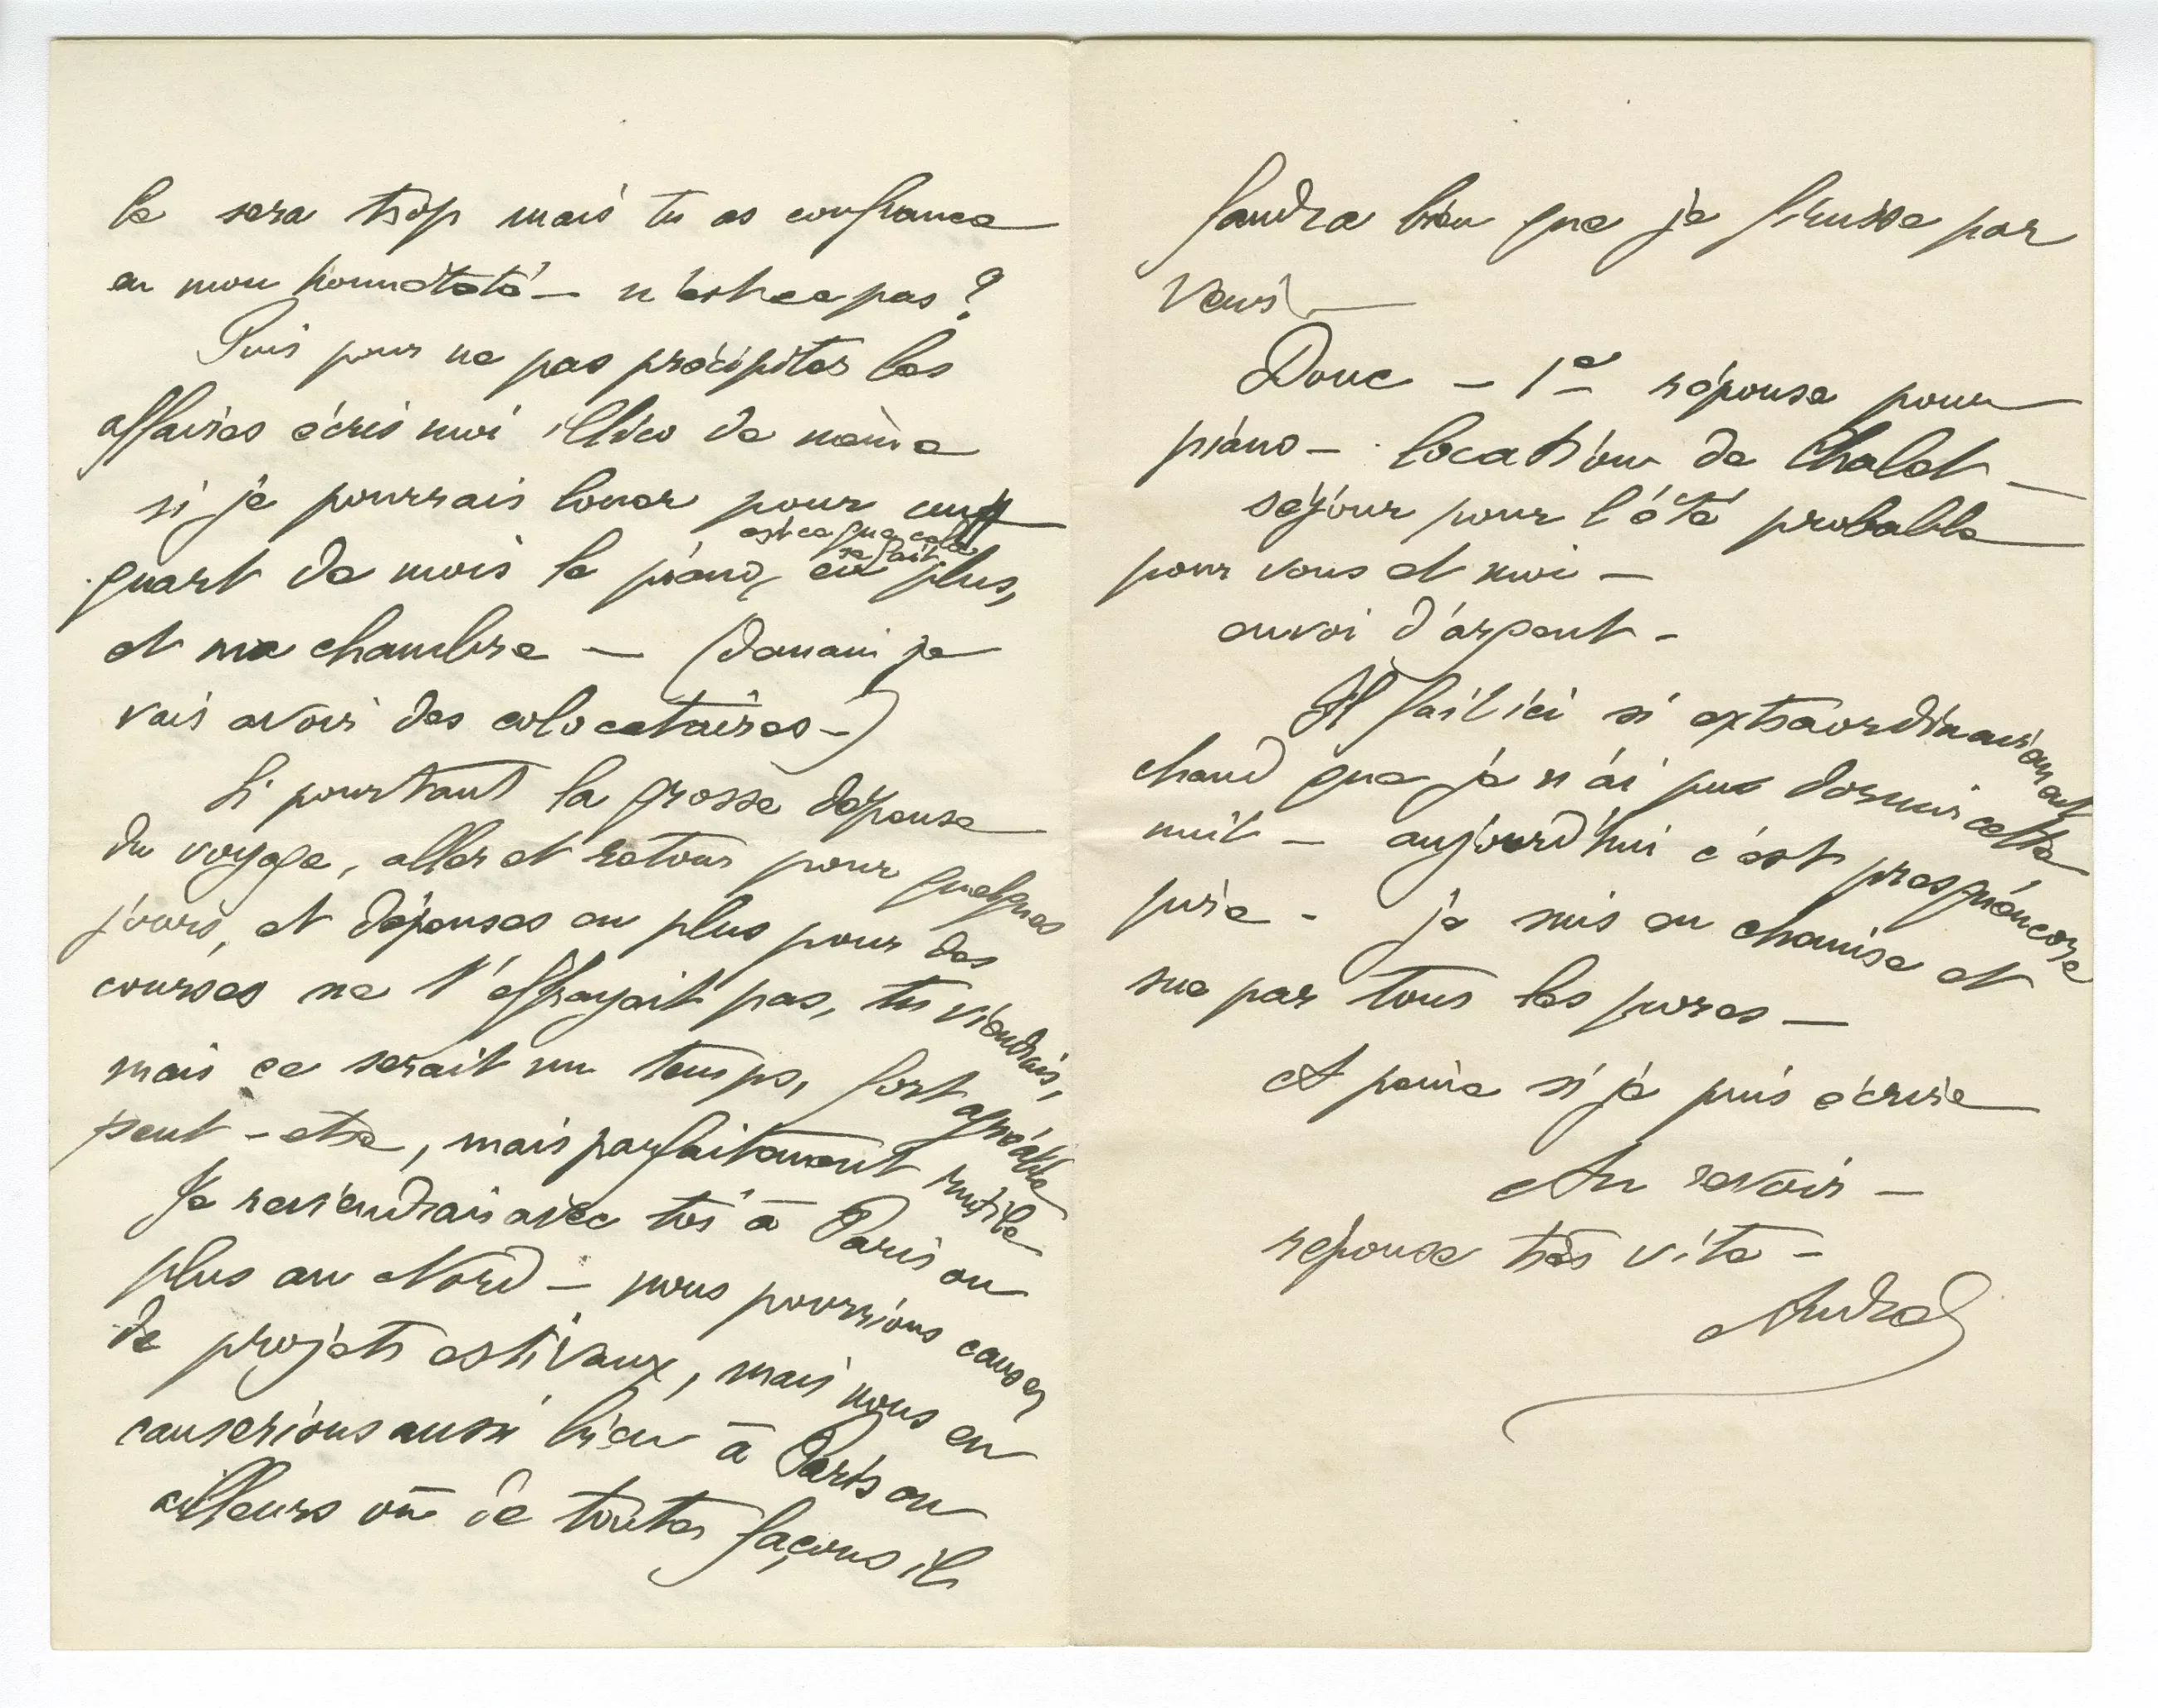 Ce sera trop mais tu as confiance
en mon honnêteté — n'est-ce pas ?
Puis pour ne pas précipiter les
affaires écris moi illico de même
si je pourrais louer pour un
quart de mois le piano, en plus,
est ce que cela
se fait
et ma chambre — (demain je
vais avoir des colocataires —)
Si pourtant la grosse dépense
du voyage, aller et retour pour quelques
jours, et dépenses en plus pour des
courses ne t'effrayait pas, tu viendrais,
mais ce serait un temps, fort agréable
peut-etre, mais parfaitement inutile
Je reviendrais avec toi à Paris ou
plus au Nord — nous pourrions causer
de projets estivaux, mais nous en
causerions aussi bien à Paris ou
ailleurs où de toutes façons il
faudra bien que je finisse par
venir —
Donc — 1e réponse pour
piano — location de Chalet —
séjour pour l'été probable
pour vous et moi —
envoi d'argent —
Il fait ici si extraordinairement
chaud que je n'ai pus dormir cette
nuit — aujourd'hui c'est presqu'encore
pire — je suis en chemise et
sue par tous les pores —
A peine si je puis écrire
Au revoir —
réponse très vite —
André